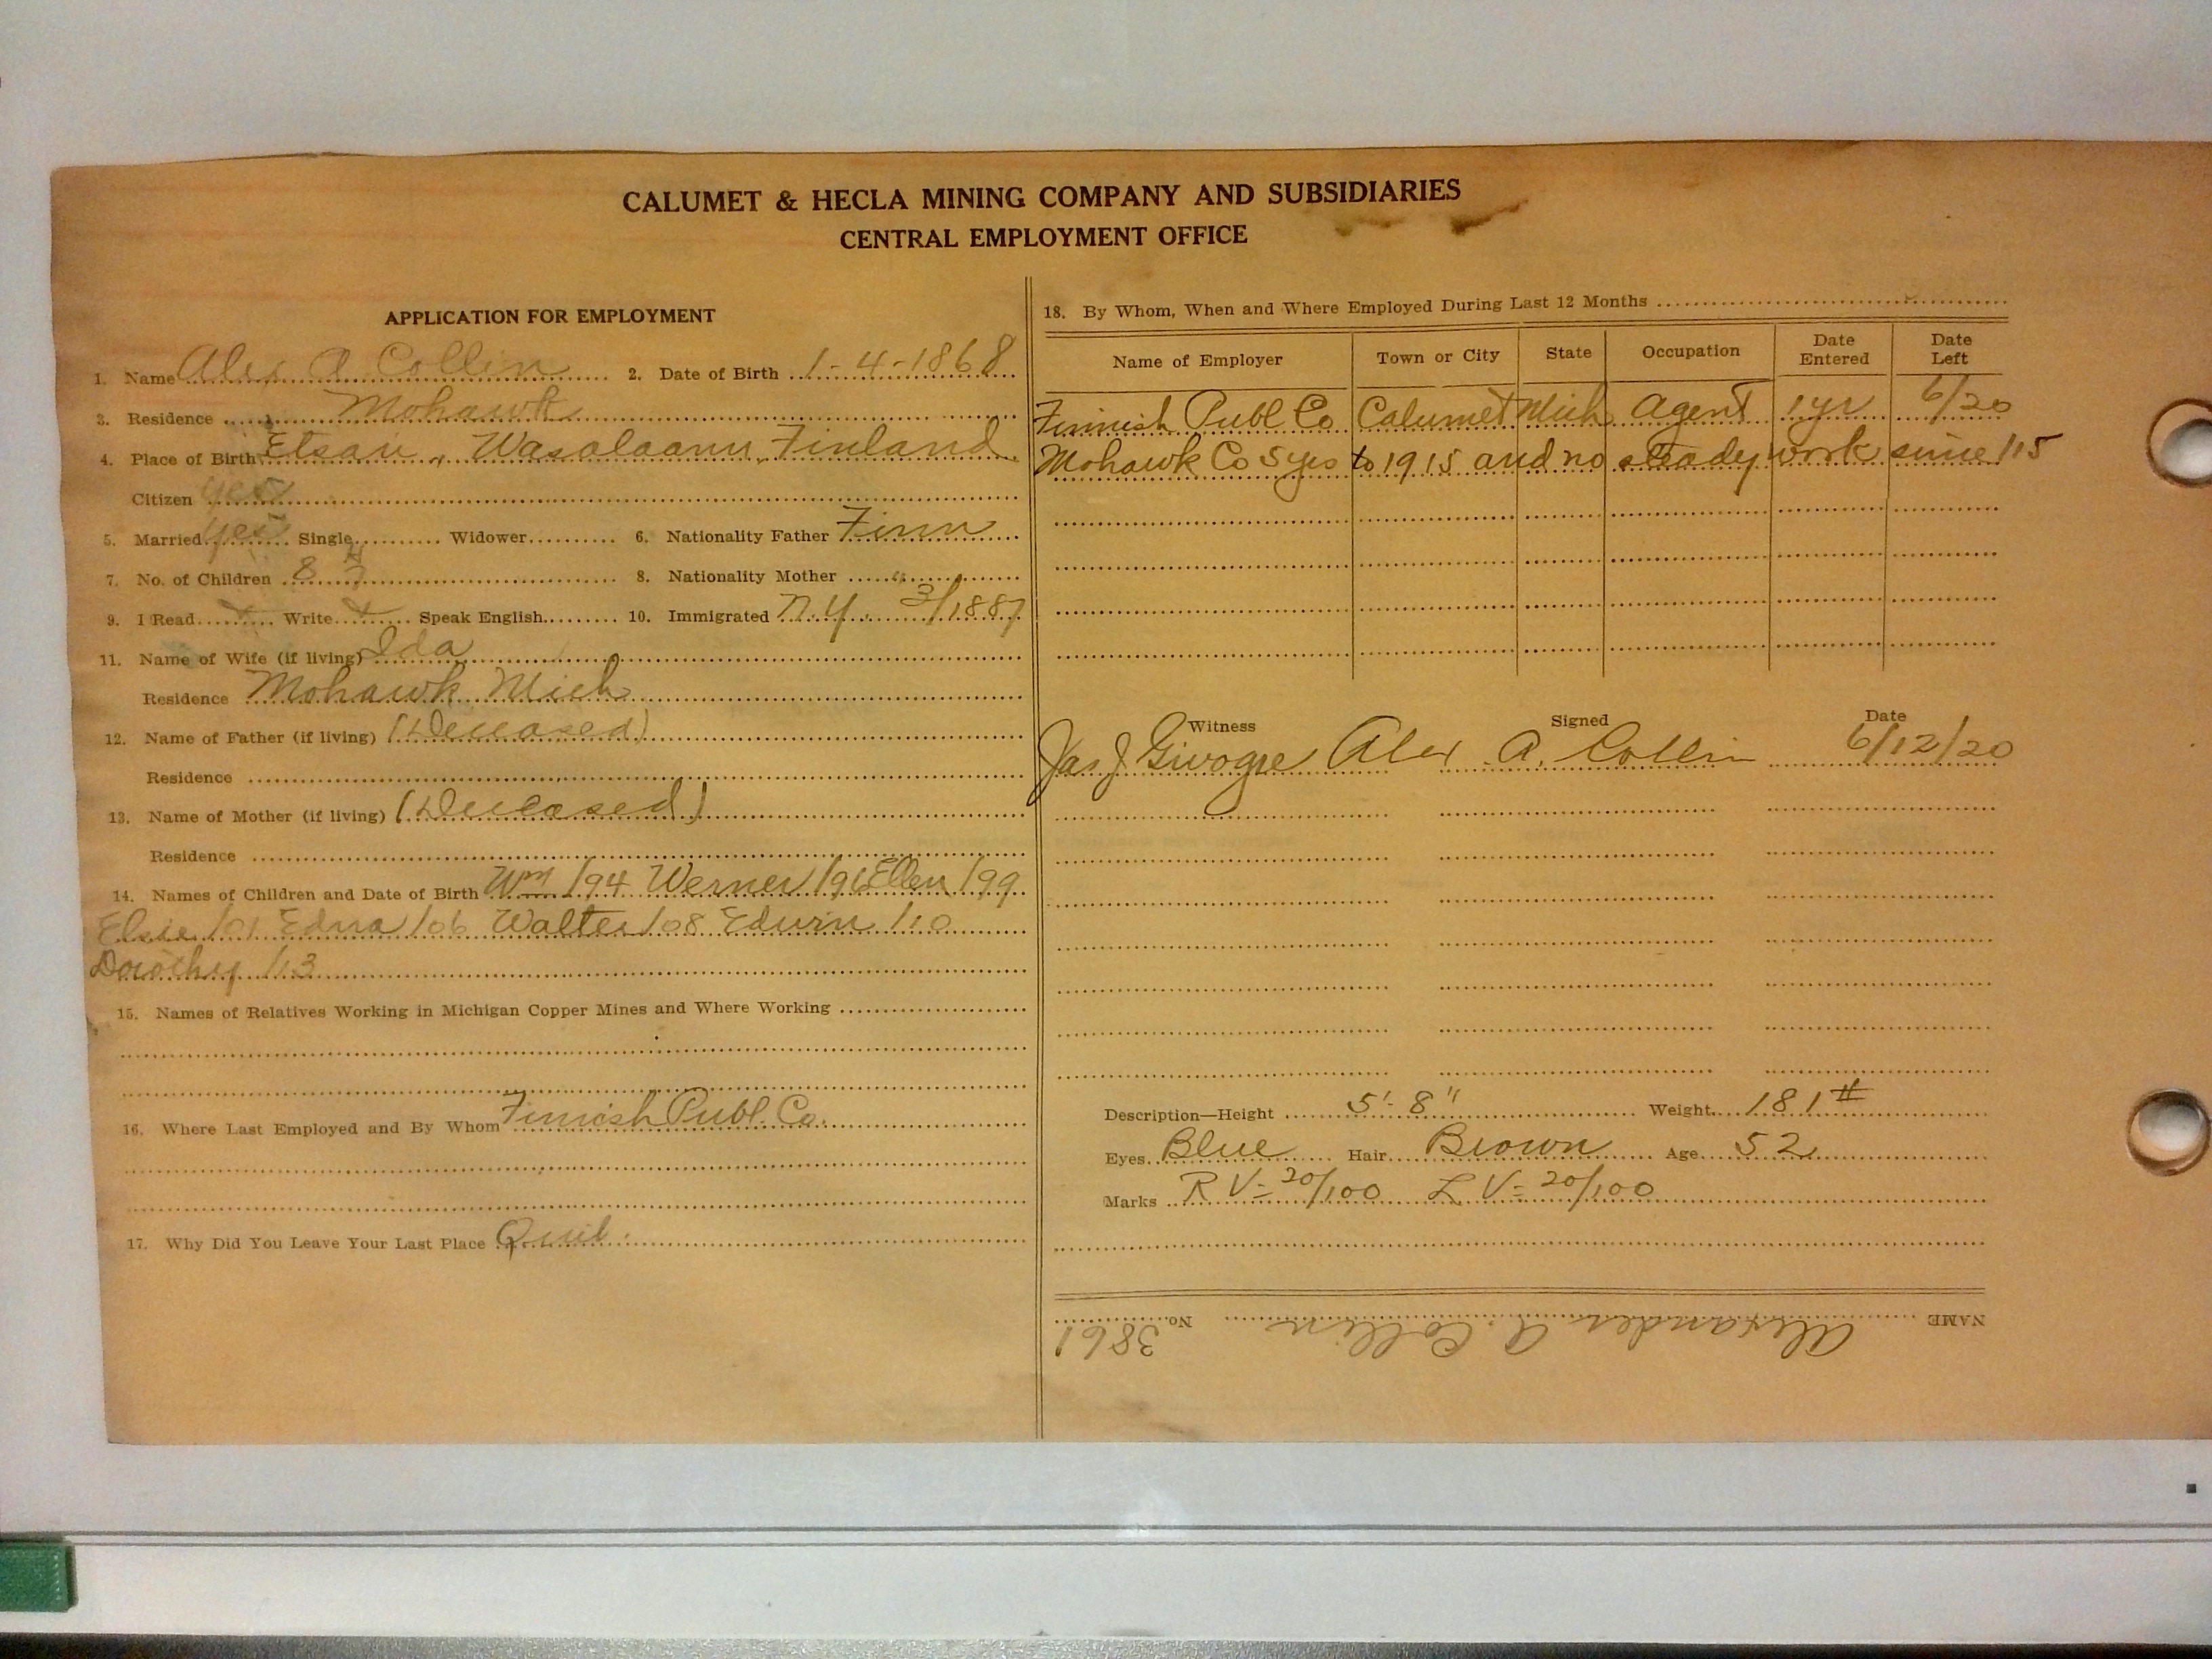 CALUMET & HECLA MINING COMPANY AND SUBSIDIARIES
CENTRAL EMPLOYMENT OFFICE
APPLICATION FOR EMPLOYMENT
1. Name Alex A Collin 2. Date of Birth 1-4-1868
3. Residence Mohawk
4. Place of Birth Etsari, Wasalaani, Finland
Citizen yes
5. Married yes Single Widower 6. Nationality Father Finn
7. No. of Children 8 8. Nationality Mother "
9. I Read x Write x Speak English 10. Immigrated N.Y. 3/1887
11. Name of Wife (if living) Ida
Residence Mohawk Mich
12. Name of Father (if living) (Deceased)
Residence
13. Name of Mother (if living) (Deceased)
Residence
14. Names of Children and Date of Birth Wm /94 Werner /96 Ellen /99
Elsie /01 Edna /06 Walter /08 Edwin /10
Dorothy /13
15. Names of Relatives Working in Michigan Copper Mines and Where Working
16. Where Last Employed and By Whom Finnish Publ. Co.
17. Why Did You Leave Your Last Place Quit.
18. By Whom, When and Where Employed During Last 12 Months
Name of Employer Town or City State Occupation Date Entered Date Left
Finnish Publ Co Calumet Mich Agent 1 yr 6/20
Mohawk Co 5 yrs to 1915 and no steady work since /15
Witness Signed Date
Jas J Givogre Alex A. Collin 6/12/20
Description—Height 5'-8" Weight 181#
Eyes Blue Hair Brown Age 52
Marks R V= 20/100 L V= 20/100
NAME Alexander A. Collin No. 3861